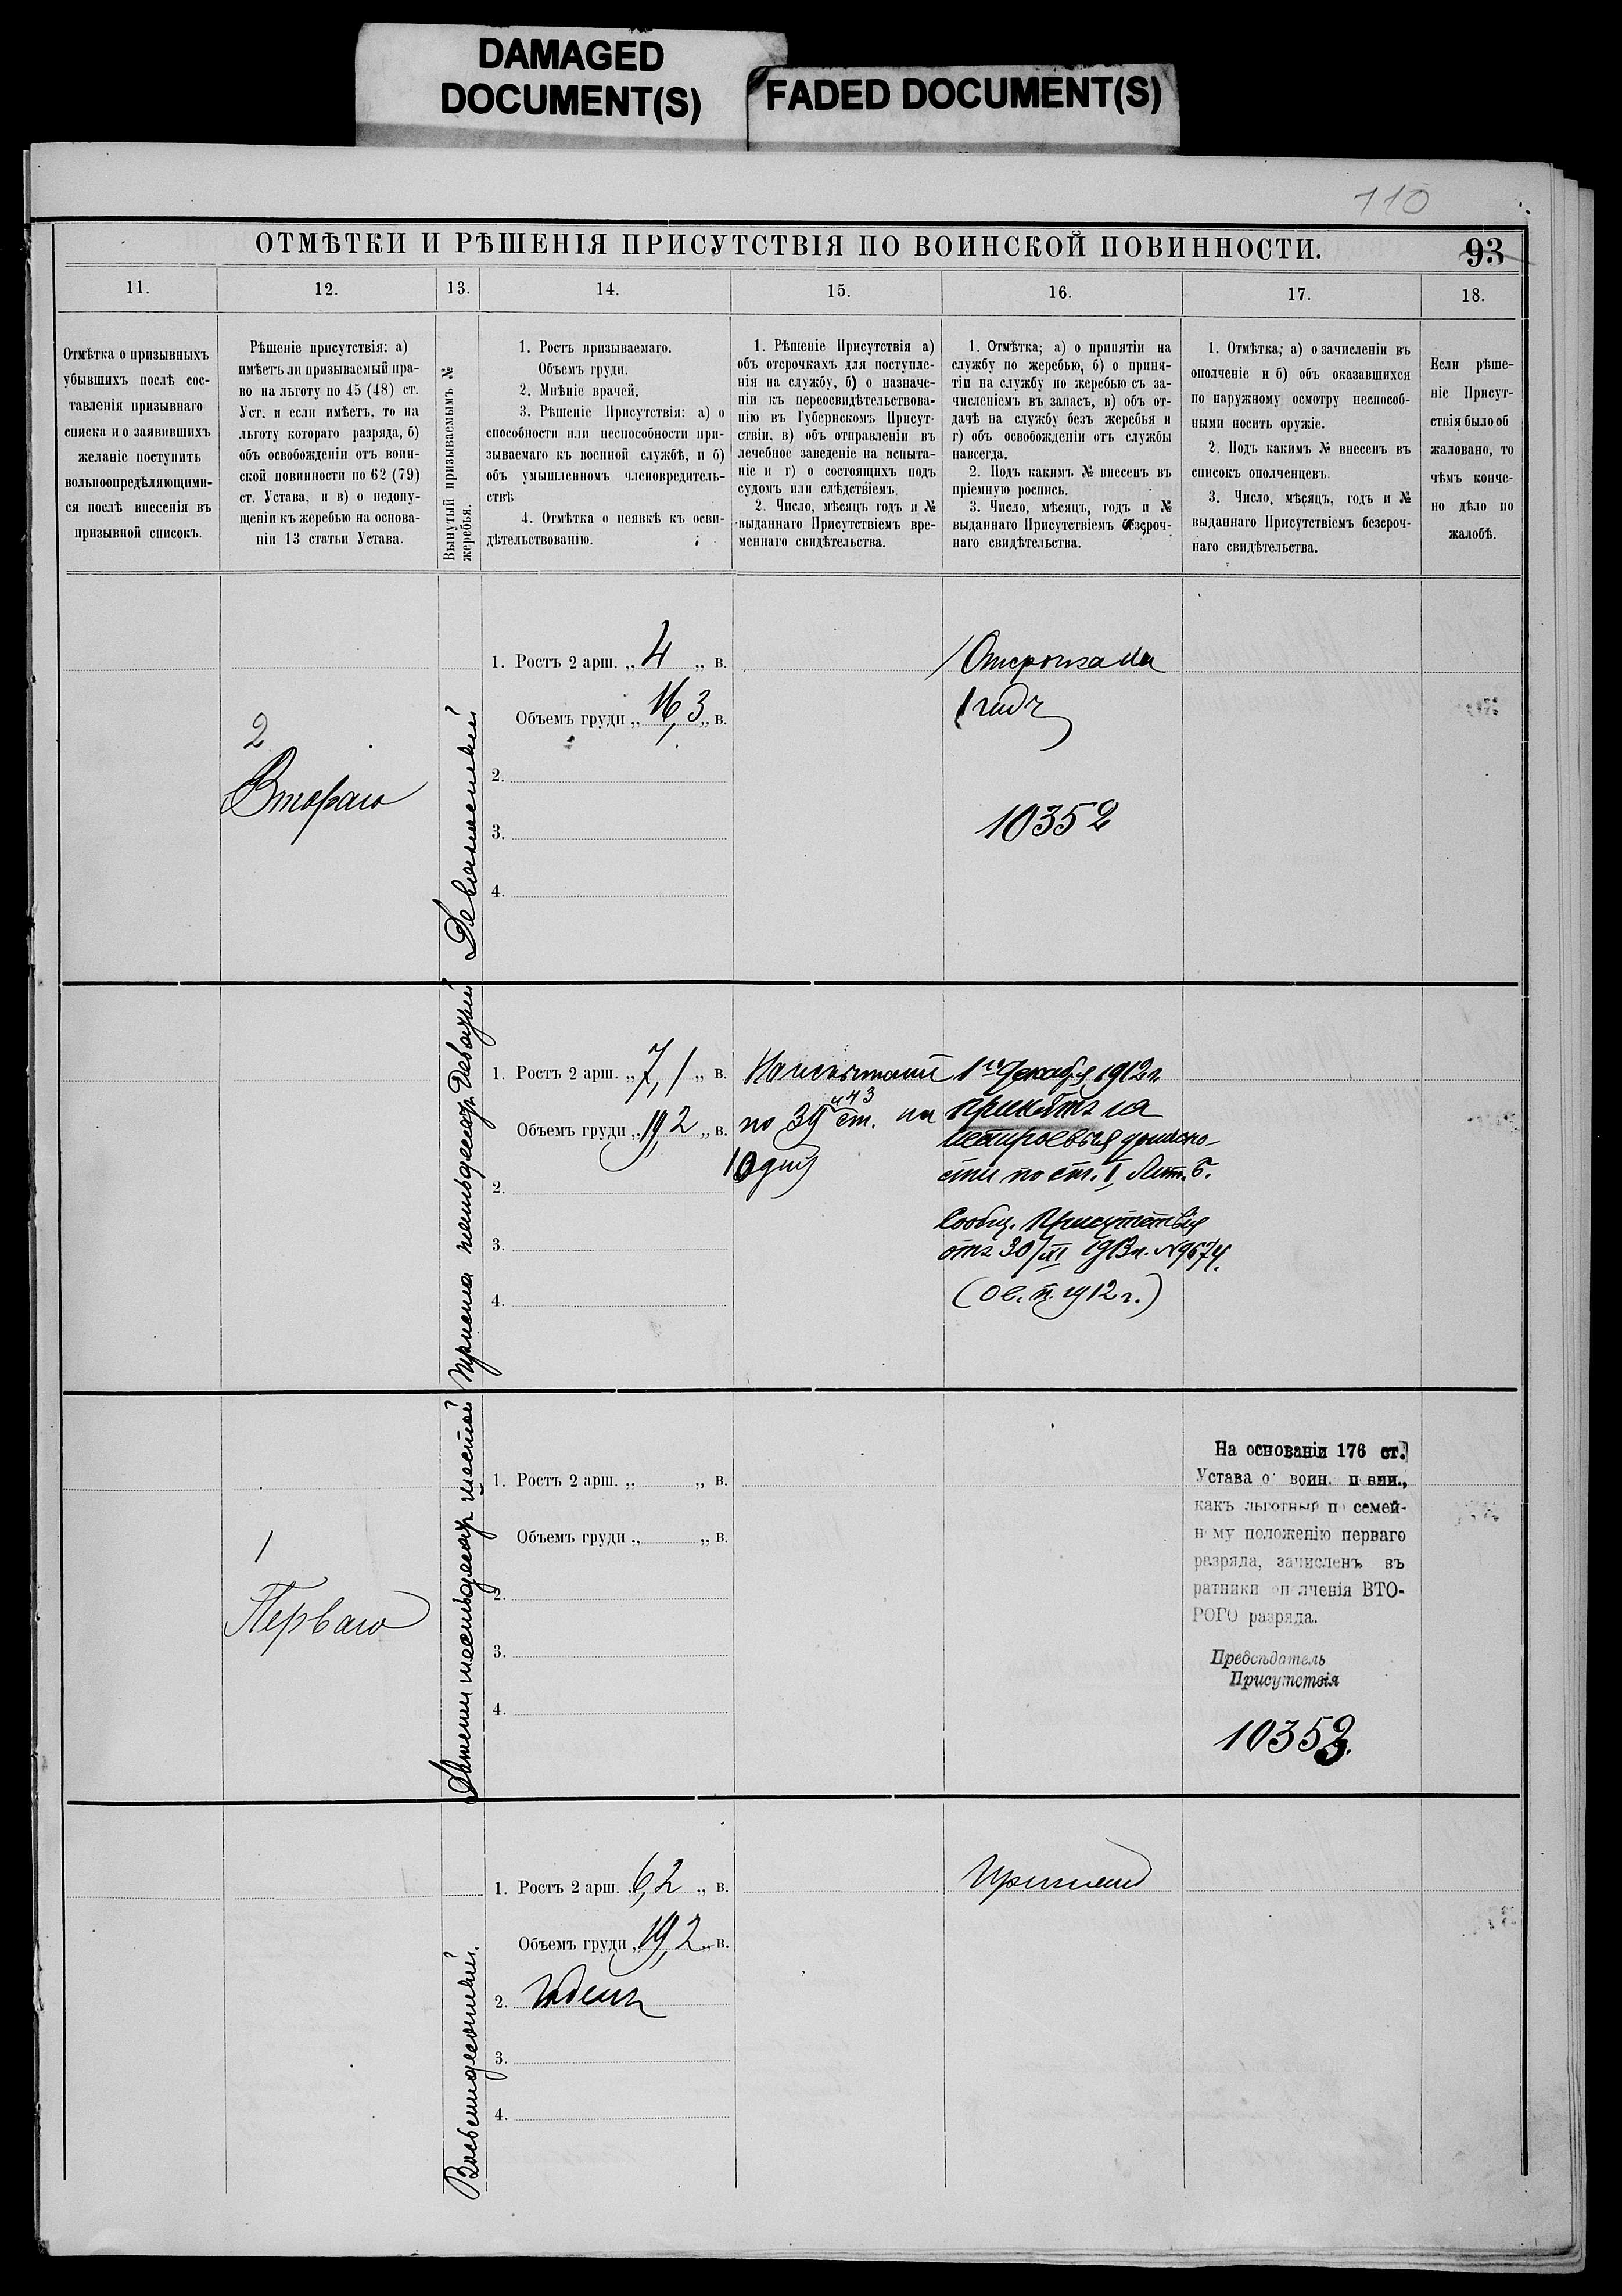 DAMAGED
DOCUMENT(S)
FADED DOCUMENT(S)
110
ОТМѢТКИ И РѢШЕНІЯ ПРИСУТСТВІЯ ПО ВОИНСКОЙ ПОВИННОСТИ.
93
11.
12.
13.
14.
15.
16.
17.
18.
Отмѣтка о призывныхъ
убывшихъ послѣ сос-
тавленія призывнаго
списка и о заявившихъ
желаніе поступить
вольноопредѣляющими-
ся послѣ внесенія въ
призывной списокъ.
Рѣшеніе присутствія: а)
имѣетъ ли призываемый пра-
во на льготу по 45 (48) ст.
Уст. и если имѣетъ, то на
льготу котораго разряда, б)
объ освобожденіи отъ воин-
ской повинности по 62 (79)
ст. Устава, и в) о недопу-
щеніи къ жеребью на основа-
ніи 13 статьи Устава.
Вынутый призываемымъ №
жеребья.
1. Ростъ призываемаго.
Объемъ груди.
2. Мнѣніе врачей.
3. Рѣшеніе Присутствія: а) о
способности или неспособности при-
зываемаго къ военной службѣ, и б)
объ умышленномъ членовредитель-
ствѣ
4. Отмѣтка о неявкѣ къ осви-
дѣтельствованію.
1. Рѣшеніе Присутствія а)
объ отсрочкахъ для поступле-
нія на службу, б) о назначе-
ніи къ переосвидѣтельствова-
нію въ Губернскомъ Присут-
ствіи, в) объ отправленіи въ
лечебное заведеніе на испыта-
ніе и г) о состоящихъ подъ
судомъ или слѣдствіемъ.
2. Число, мѣсяцъ годъ и №
выданнаго Присутствіемъ вре-
меннаго свидѣтельства.
1. Отмѣтка; а) о принятіи на
службу по жеребью, б) о приня-
тіи на службу по жеребью съ за-
численіемъ въ запасъ, в) объ от-
дачѣ на службу безъ жеребья и
г) объ освобожденіи отъ службы
навсегда.
2. Подъ какимъ № внесенъ въ
пріемную роспись.
3. Число, мѣсяцъ, годъ и №
выданнаго Присутствіемъ безсроч-
наго свидѣтельства.
1. Отмѣтка; а) о зачисленіи въ
ополченіе и б) объ оказавшихся
по наружному осмотру неспособ-
ными носить оружіе.
2. Подъ какимъ № внесенъ въ
списокъ ополченцевъ.
3. Число, мѣсяцъ, годъ и №
выданнаго Присутствіемъ безсроч-
наго свидѣтельства.
Если рѣше-
ніе Присут-
ствія было об
жаловано, то
чѣмъ конче-
но дѣло по
жалобѣ.
2
Втораго
Девяностый
1. Ростъ 2 арш. „ 4 „ в.
Объемъ груди „ 16,3 „ в.
2.
3.
4.
Отсрочка на
1 годъ
10352
Триста пятьдесят девятый
1. Ростъ 2 арш. „ 7,1 „ в.
Объемъ груди „ 19,2 „ в.
2.
3.
4.
На испытаніе
по 39 и 43 ст. на
10 дней
1го Декабря 1912 г.
принятъ на
нестроевыя должно-
сти по ст. I, Лит. Б.
Сообщ. Присутствія
отъ 30/XI 1913 г. №9674.
1
Перваго
шестьдесят шестой
1. Ростъ 2 арш. „ „ в.
Объемъ груди „ „ в.
2.
3.
4.
На основаніи 176 ст.
Устава о воин. повин.,
какъ льготный по семей-
ному положенію перваго
разряда, зачисленъ въ
ратники ополченія ВТО-
РОГО разряда.
Предсѣдатель
Присутствія
10353.
Восьмидесятый.
1. Ростъ 2 арш. „ 6,2 „ в.
Объемъ груди „ 19,2 „ в.
2. Годенъ
3.
4.
Принятъ